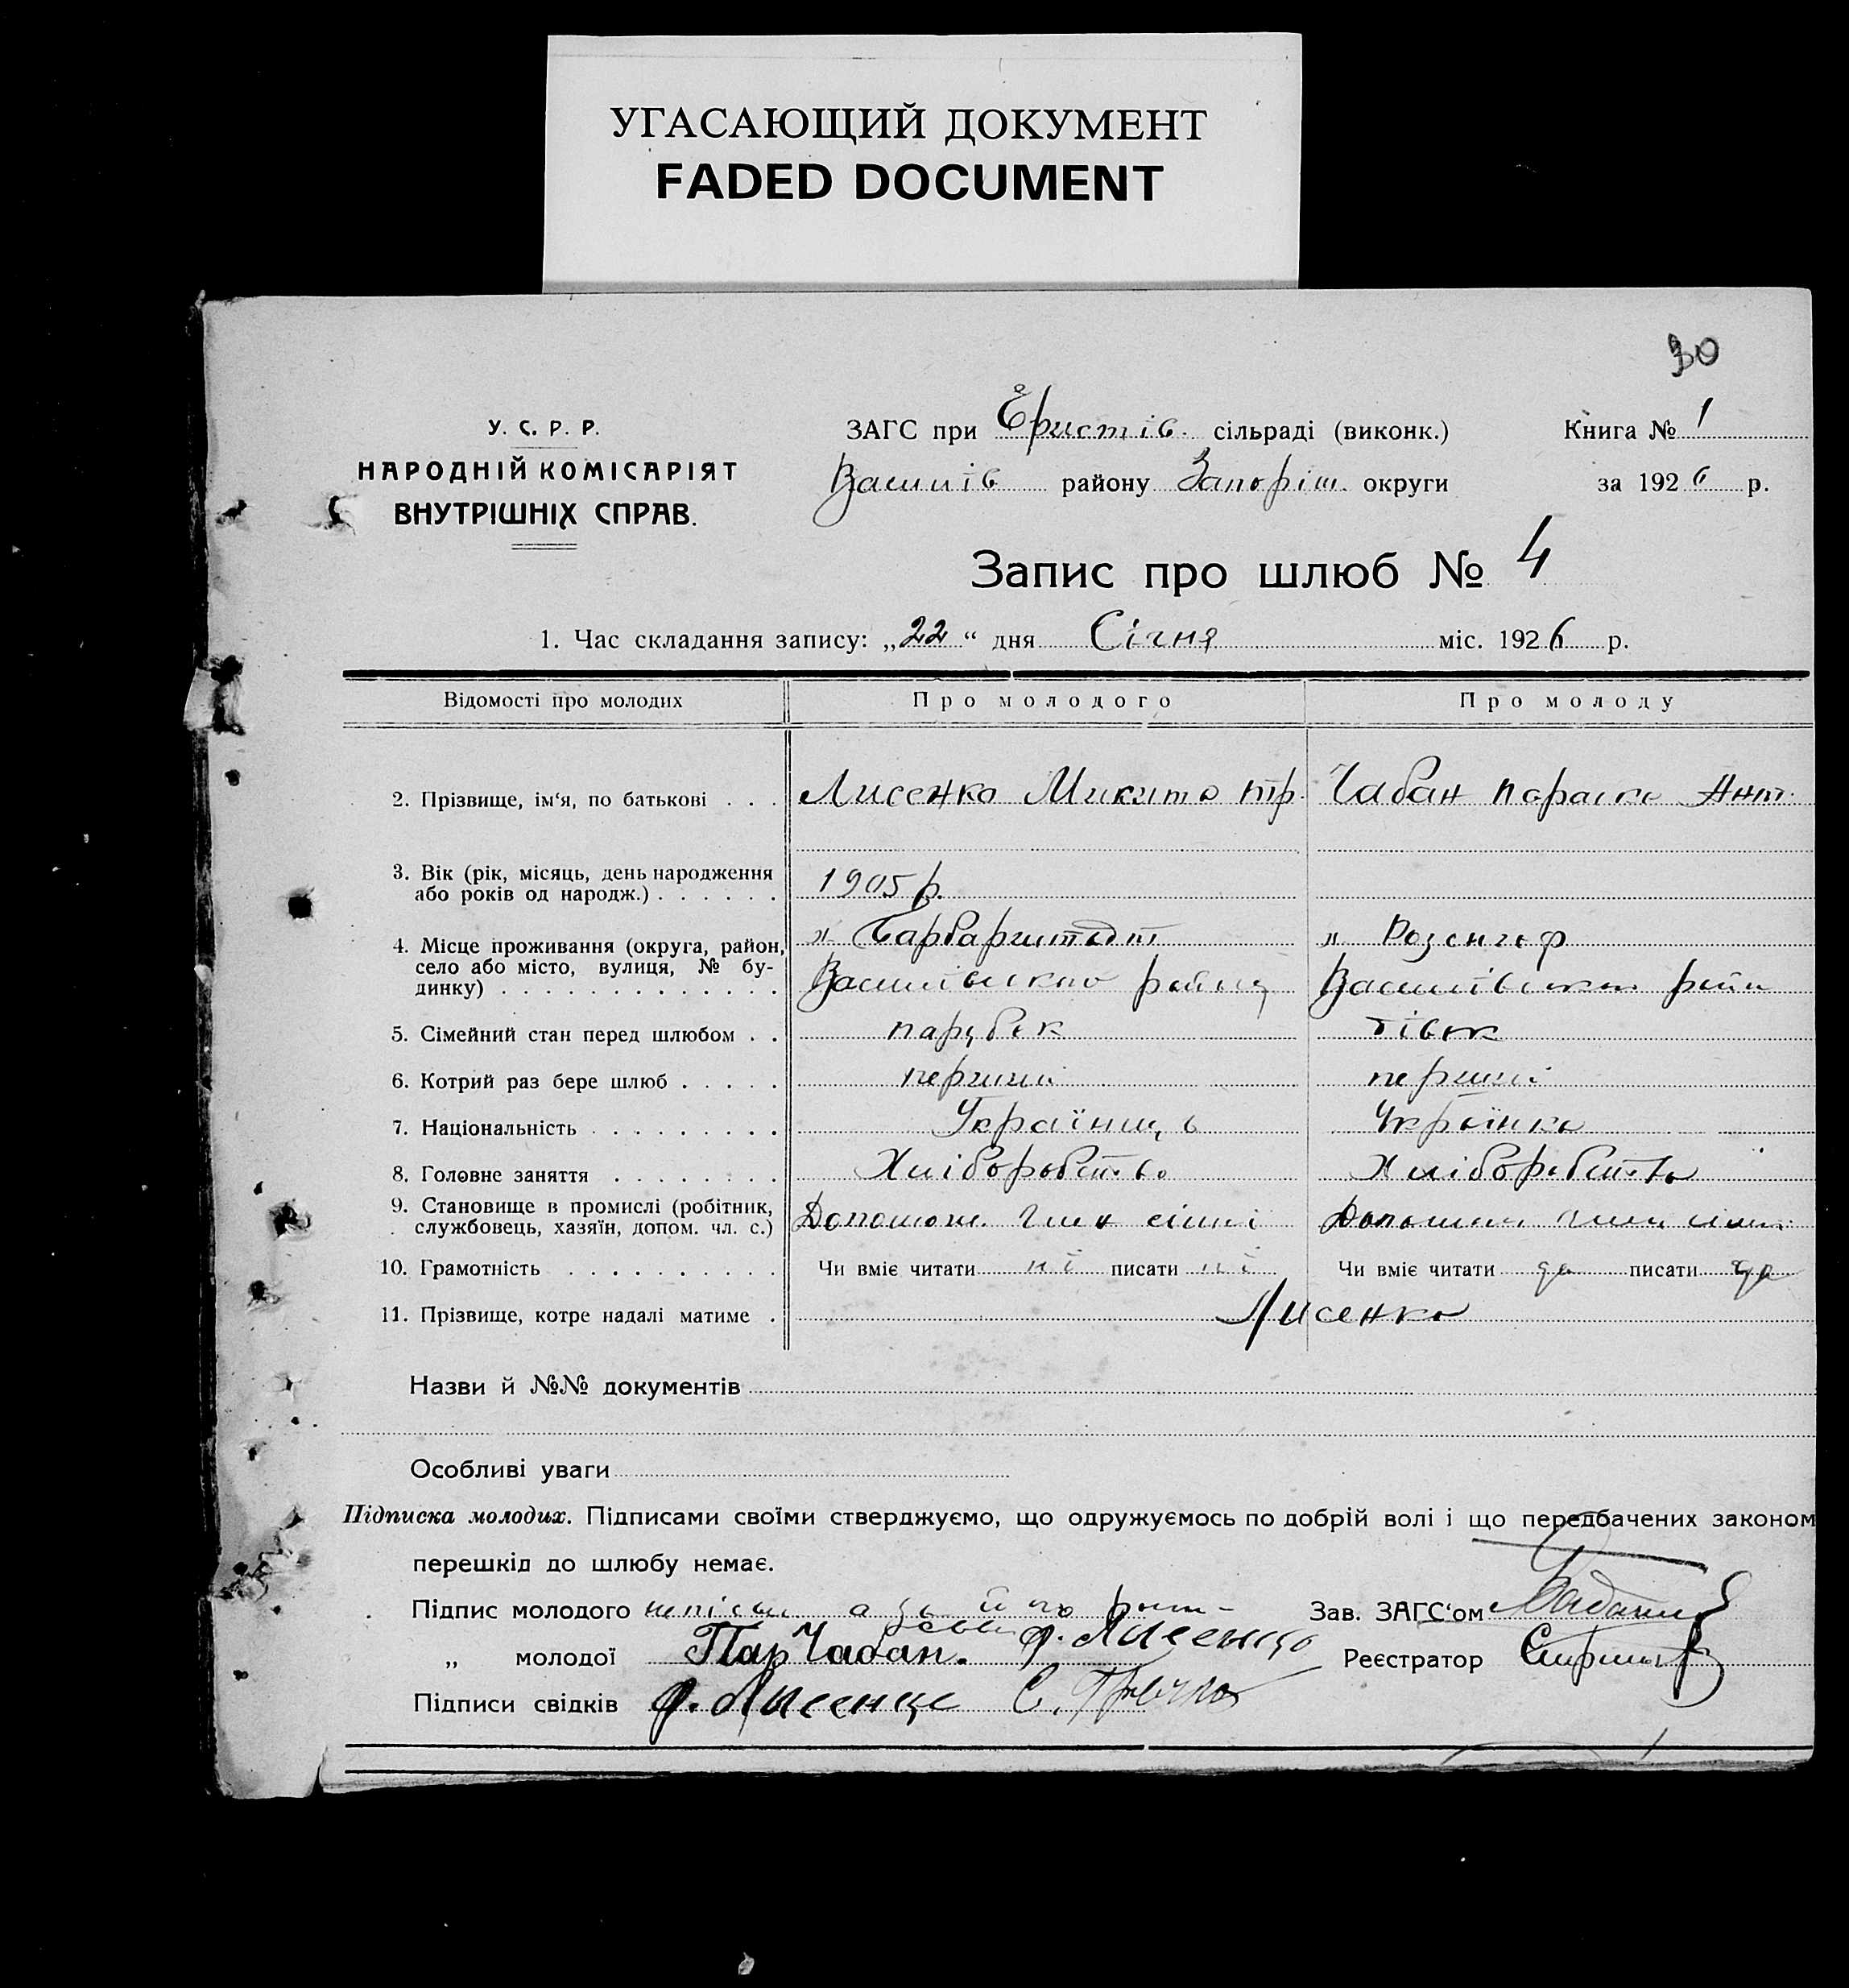 УГАСАЮЩИЙ ДОКУМЕНТ
FADED DOCUMENT
30
У. С. Р. Р.
НАРОДНІЙ КОМІСАРІЯТ
ВНУТРІШНІХ СПРАВ.
ЗАГС при Ёристів. сільраді (виконк.)
Книга № 1
Василів району Запоріш. округи
за 1926 р.
Запис про шлюб № 4
1. Час складання запису: „22“ дня Січня міс. 1926 р.
Відомості про молодих
Про молодого
Про молоду
2. Прізвище, ім‘я, по батькові . . .
Лисенко Микита
Чабан Параска Ант.
3. Вік (рік, місяць, день народження
або років од народж.) . . . . . .
1905 р.
4. Місце проживання (округа, район,
село або місто, вулиця, № бу-
динку) . . . . . . . . . . . . .
Василівського району
Василівського
5. Сімейний стан перед шлюбом . .
парубок
6. Котрий раз бере шлюб . . . . .
перший
перший
7. Національність . . . . . . . . .
Українець
Українка
8. Головне заняття . . . . . . . .
Хліборобство
Хліборобство
9. Становище в промислі (робітник,
службовець, хазяїн, допом. чл. с.)
Допомож. член сімїі
Допомож. член
10. Грамотність . . . . . . . . . .
Чи вміє читати ні писати ні
Чи вміє читати да писати да
11. Прізвище, котре надалі матиме .
Лисенко
Назви й №№ документів
Особливі уваги
Підписка молодих. Підписами своїми стверджуємо, що одружуємось по добрій волі і що передбачених законом
перешкід до шлюбу немає.
Підпис молодого
Зав. ЗАГС‘ом
„ молодої Пар Чабан.
Реєстратор
Підписи свідків